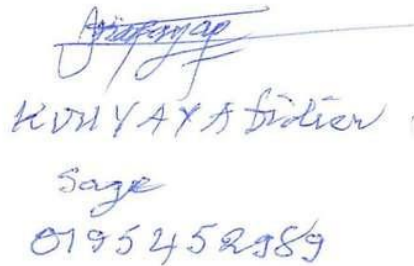 KUHYAYA Didier
Sage
0195452989